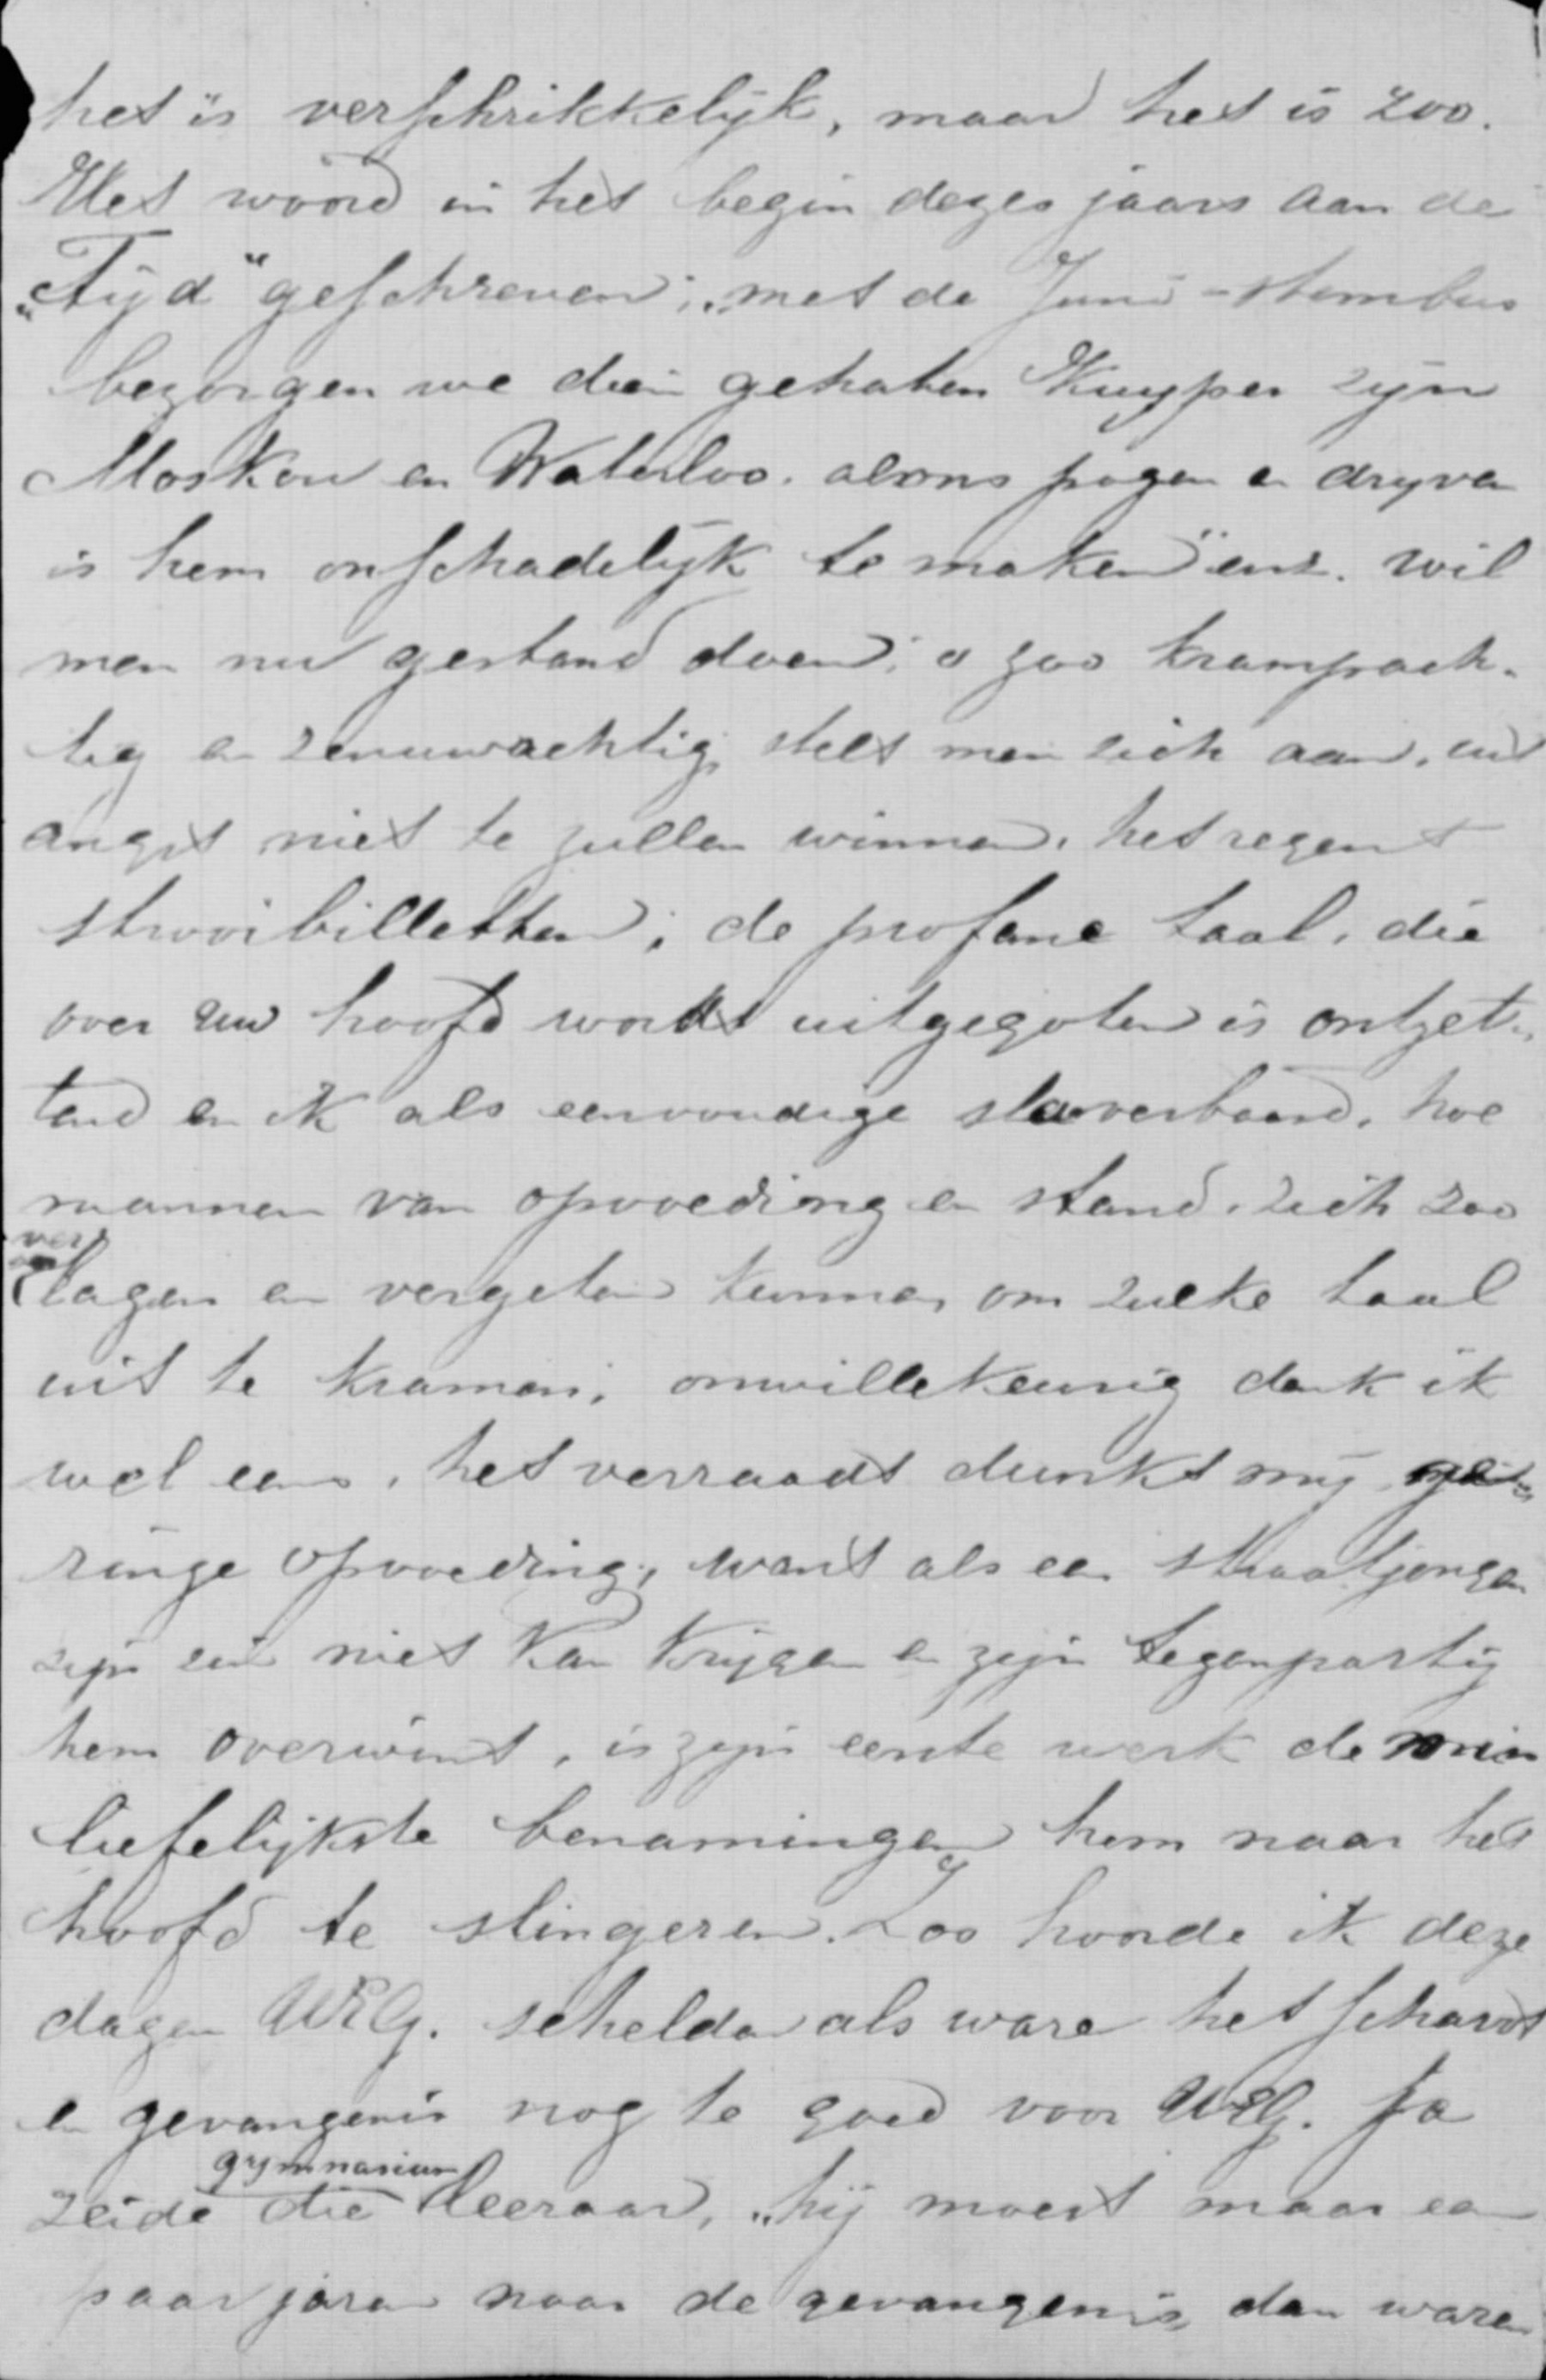 het is verschrikkelijk, maar het is zoo.
Het woord in het begin dezes jaars aan de
"Tijd" geschreven; "met de Juni-stembus
bezorgen we dien gehaten Kuyper zijn
Moskou en Waterloo. al ons pogen en dryven
is hem onschadelijk te maken" enz. wil
men nu gestand doen; o zoo krampach-
tig en zenuwachtig stelt men zich aan, uit
angst niet te zullen winnen, het regent
strooibilletten; de profane taal, die
over uw hoofd wordt uitgegoten is ontzet-
tend en ik als eenvoudige sta verbaasd, hoe
mannen van opvoeding en stand, zich zoo
ver
lagen en vergeten kunnen om zulke taal
uit te kramen; onwillekeurig denk ik
wel eens, het verraadt dunkt mij ge-
ringe opvoeding, want als een straatjongen
zijn zin niet kan krijgen en zijn tegenpartij
hem overwint, is zijn eerste werk de min
liefelijkste benamingen hem naar het
hoofd te slingeren. Zoo hoorde ik deze
dagen UEG. schelden als ware het schavot
en gevangenis nog te goed voor UEG. Ja
gymnasium
zeide die leeraar, "hij moest maar een
paar jaren naar de gevangenis, dan waren